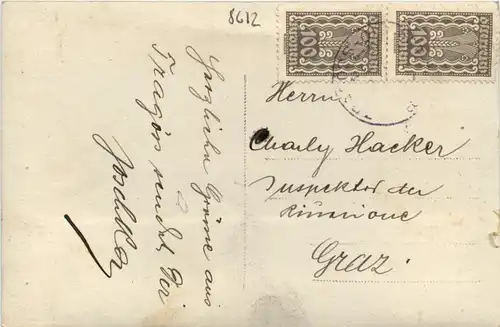 8612
100
100
Herrn
Charly Hacker
Inspektor der
Graz.
Herzliche Grüsse aus
Tragöss sendet Dir